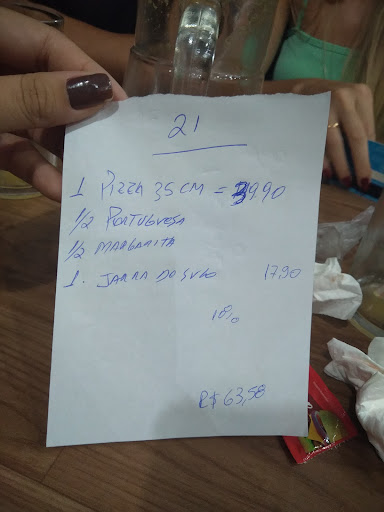 21
1 PIZZA 35 CM = 39,90
1/2 PORTUGUESA
1/2 MARGARITA
1. JARRA DO SUCO 17,90
10%
R$ 63,58